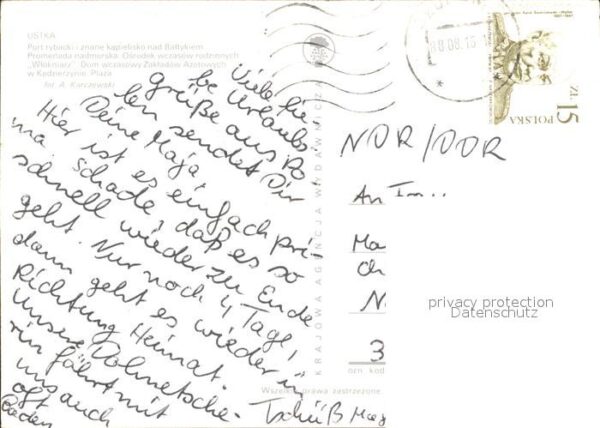 USTKA
Port rybacki i znane kąpielisko nad Bałtykiem
Promenada nadmorska. Ośrodek wczasów rodzinnych
"Włókniarz". Dom wczasowy Zakładów Azotowych
w Kędzierzynie. Plaża
fot. A. Karczewski
Viele lie
be Urlaubs-
grüße aus Po
len sendet Dir
Deine Maja
Hier ist es einfach pri-
ma. Schade, daß es so
schnell wieder zu Ende
geht. Nur noch 4 Tage,
dann geht es wieder in
Richtung Heimat.
Unsere Dolmetsche-
rin fährt mit
uns auch
oft
Baden
Tschüß
KRAJOWA AGENCJA WYDAWNICZA
88.08.15
ZŁ 15
POLSKA
NDR/DDR
An Im..
Ma
N
3
privacy protection
Datenschutz
Wszelkie prawa zastrzeżone